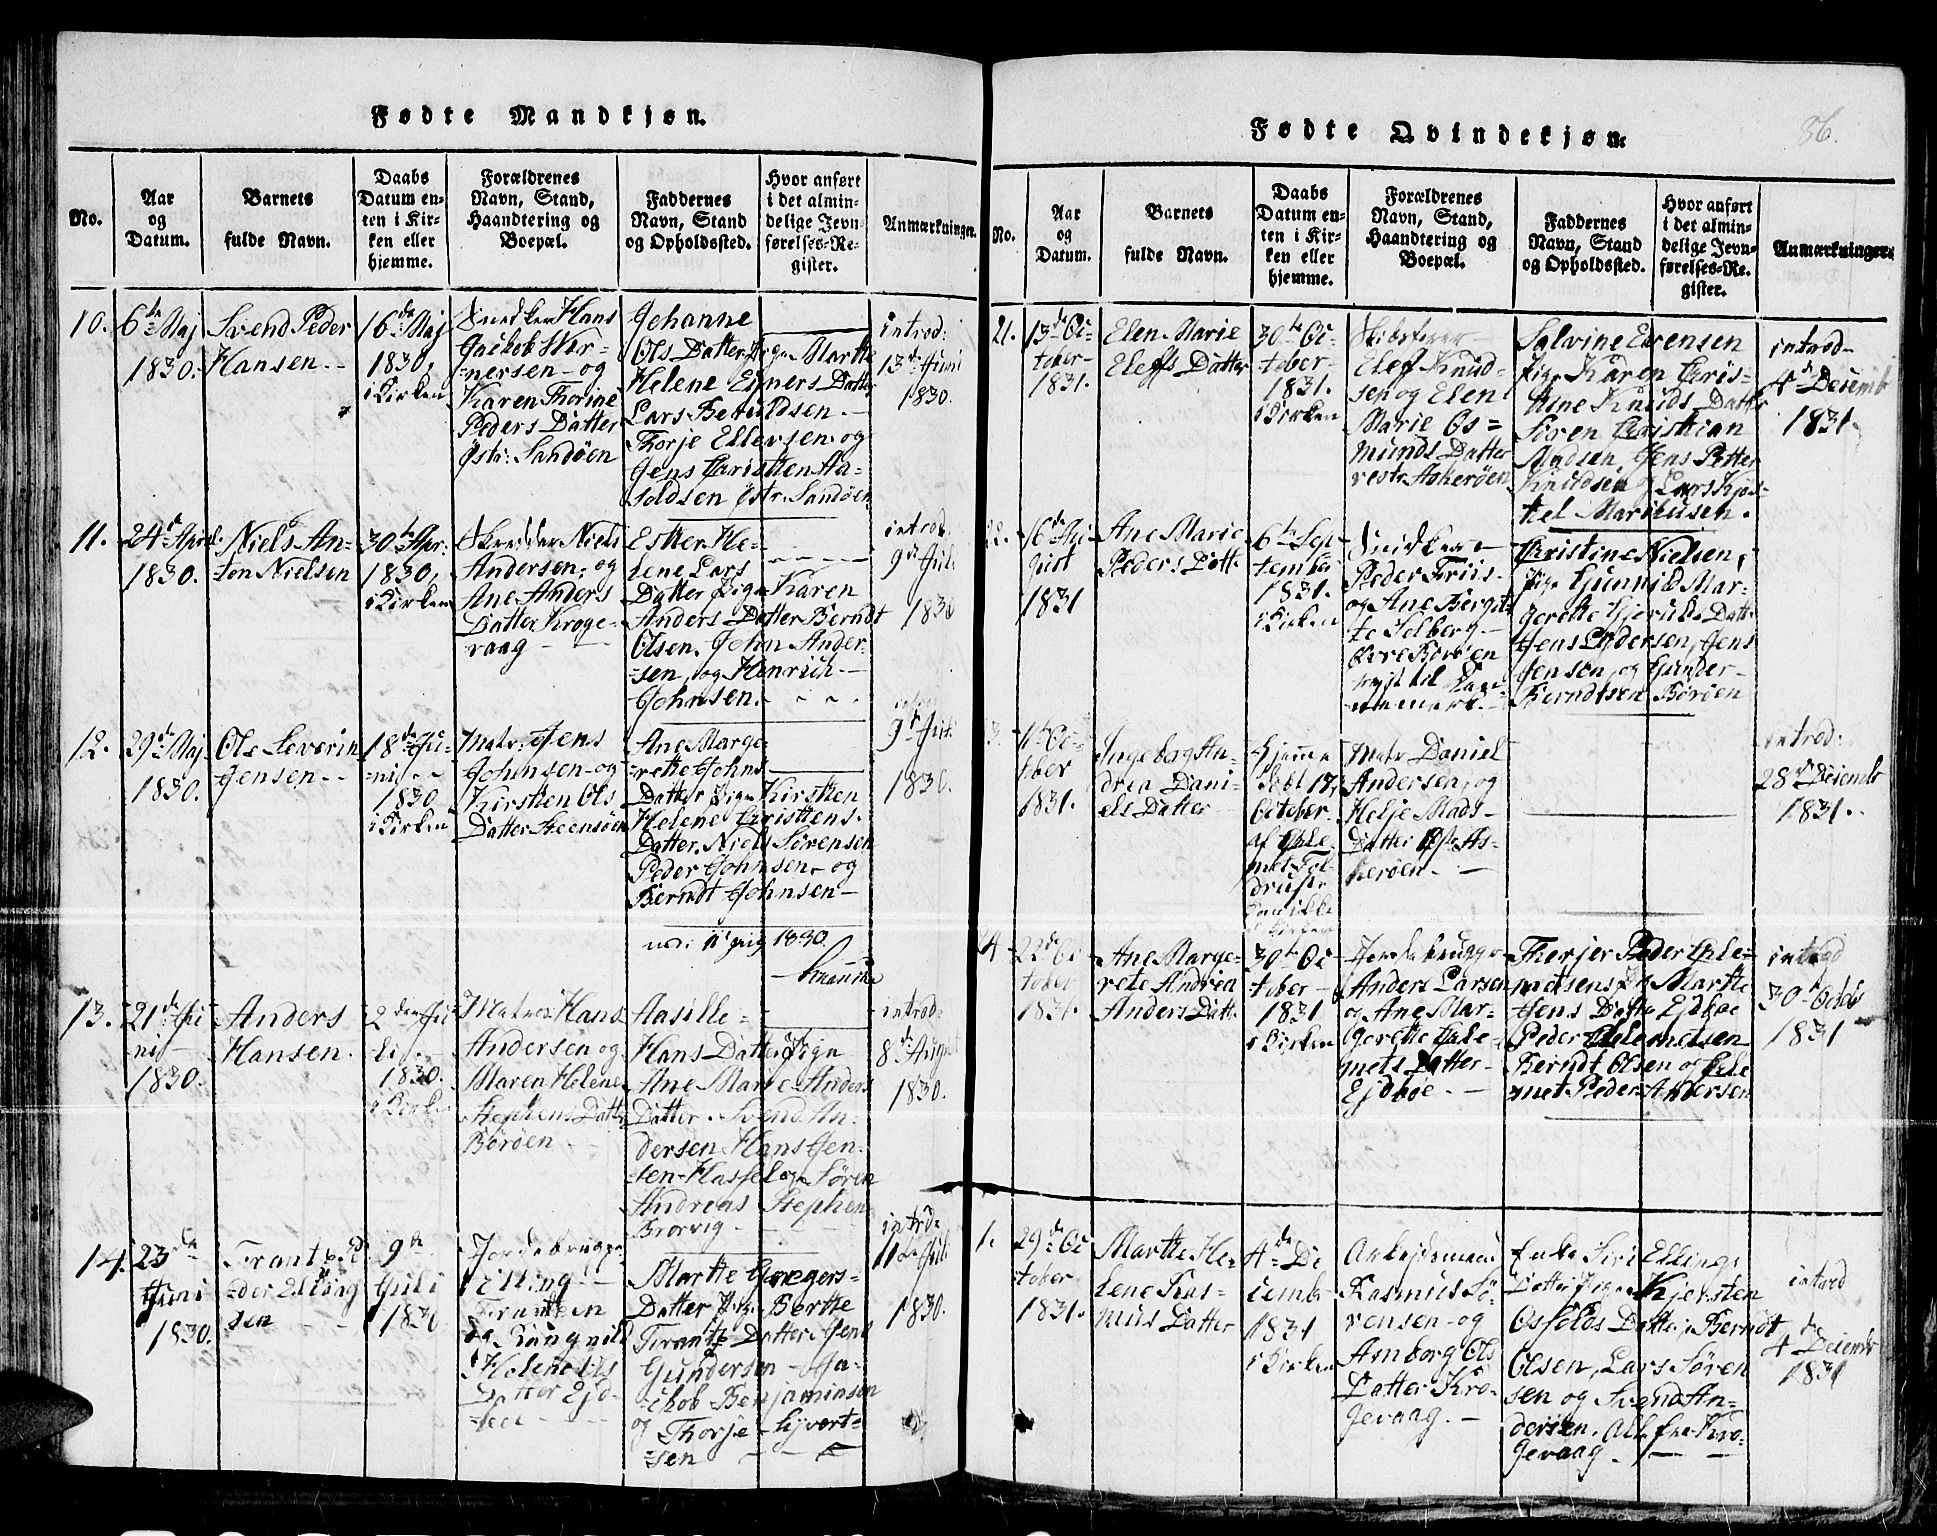 Fødte Mandkjøn.
No.
Aar
og
Datum.
Barnets
fulde Navn.
Daabs
Datum en-
ten i Kir-
ken eller
hjemme.
Forældrenes
Navn, Stand,
Haandtering og
Boepæl.
Faddernes
Navn, Stand
og Opholdssted.
Hvor anført
i det almin-
delige Jevn-
førelses-Re-
gister.
Anmærkninger.
10.
6de Maj
1830.
Svend Peder
Hansen.
16de Maj
1830,
i Kirken
Snedker Hans
Jacob War-
nersen og
Karen Thorine
Peders Datter
Østr: Sandøen
Johanne
Ols Datter, Pige Marthe
Helene Ejners Datter
Lars Beruldsen.
Thorje Ellevsen og
Jens Christen Aa-
soldsen Østr. Sandøen
introd:
13de Juni
1830.
11.
24de April
1830.
Niels An-
ton Nielsen
30te Apr:
1830,
i Kirken
Skredder Niels
Andersen, og
Ane Anders
Datter Kroge-
vaag
Esther He-
lene Lars
Datter Pige Karen
Anders Datter Berndt
Olsen, John Ander-
sen, og Henrich
Johnsen.
introd
9de Juli
1830
12.
29de Maj
1830.
Ole Severin
Jensen
18de Ju-
ni
1830
i Kirken
Matr. Jens
Johnsen og
Kirsten Ols
Datter Steensøen
Ane Marge-
rette Johns
Datter Pige Kirsten
Helene Christens
Datter. Niels Sørensen
Peder Johnsen og
Berndt Johnsen
introd
9de Juli
1830.
1830.
13.
21de Ju-
ni
1830.
Anders
Hansen.
2den Ju-
li
1830.
i Kirken
Matros Hans
Andersen og
Maren Helene
Stephens Datter
Børøen
Aasille
Hans Datter, Pige
Ane Marie Anders
Datter. Svend An-
dersen Hans Jen-
sen Hassel og Søren
Andreas Stephen
Brorvig
introd:
8de August
1830.
14.
23de
Juni
1830.
Trants Pe-
der Elling
sen
9de
Juli
1830
Jordebruger
Elling
Trantsen
og Rangnild
Helene Ols
Datter Ejd-
boe
Marthe Gregers-
Datter Pige Berthe
Trants Datter. Jens
Gundersen Ja-
chob Benjaminsen
og Thorje Syvert-
sen
introd:
11te Juli
1830.
Fødte Qvindekjøn.
86.
No.
Aar
og
Datum.
Barnets
fulde Navn.
Daabs
Datum en-
ten i Kir-
ken eller
hjemme.
Forældrenes
Navn, Stand,
Haandtering og
Boepæl.
Faddernes
Navn, Stand
og Opholdssted.
Hvor anført
i det almin-
delige Jevn-
førelses-Re-
gister.
Anmærkninger.
21.
13de Oc-
tober
1831.
Elen Marie
Elefs Datter
30te Oc-
tober
1831.
i Kirken
Elef Knud-
sen og Elen
Marie Os-
munds Datter
vestr. Askerøen
Salvine Evensen
Pige Karen Chris-
tine Knuds Datter
Søren Christian
Madsen, Jens Petter
Knudsen og Lars Kjøs-
tel Marthusen.
introd
4de Decemb
1831.
22.
16de Au-
gust
1831
Ane Marie
Peders Datt:
6te Sep-
tember
1831.
i Kirken
Snedker
Peder Friis
og Ane Bergit-
te Selberg
Øvre Børøen
Christine Nielsen,
Pige Gunnild Mar-
gerethe Gjeruls Datt:
Jens Lydersen, Jens
Jensen, og Gunder
Berndtsen Børøen
3.
11te Oc-
tober
1831.
Ingeborg An-
drea Dani-
els Datter
Hjemme
døbt 17,
October
af Chle-
met Tol-
Matr Daniel
Andersen, og
Helje Mads
Datter Østr As-
kerøen.
introd:
28de Decemb
1831.
24
22de Oc
tober
1831.
Ane Marge-
rete Andrea
Anders Datt:
30te Oc-
tober
1831
i Kirken
Jordebruger
Anders Larsen
og Ane Mar-
gerette Chle-
mets Datter
Ejdboe.
Thorjer Peder Chle-
metsens Pr Marthe
Jens Datter Ejdboe
Peder Chlemetsen
Berndt Olsen og Chle
met Peder Andersen
introd
30te Octob
1831
1.
29de Oc
tober
1831.
Marthe He-
lene Ras-
mus Datter
4de De
cemb-
1831
i Kirken
Arbejdsmand
Rasmus Sø-
rensen og
Amborg Ols
Datter Kro-
gevaag.
Enke Siri Ellings
Datter, Pige Kjersten
Osfolds Datter, Berndt
Olsen, Lars Søren
sen og Svend An-
dersen. Alle fra Kro-
gevaag.
introd
4de Decemb
1831